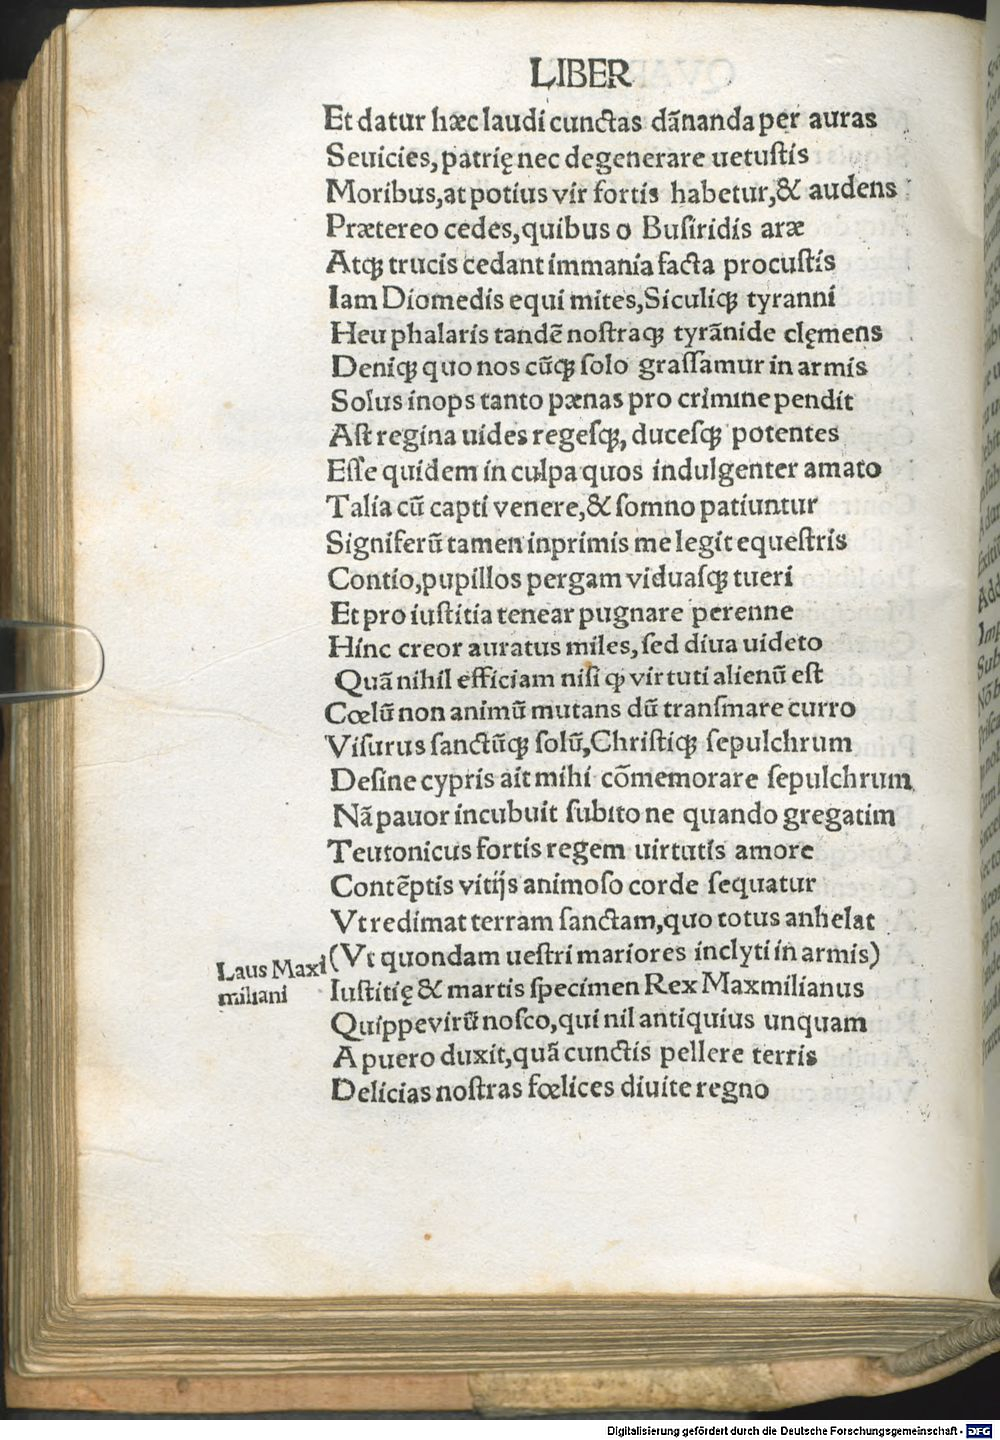 LIBER
Et datur hæc laudi cunctas dãnanda per auras
Seuicies, patrię nec degenerare uetustis
Moribus, at potius vir fortis habetur, & audens
Prætereo cedes, quibus o Busiridis aræ
Atqꝫ trucis cedant immania facta procustis
Iam Diomedis equi mites, Siculiqꝫ tyranni
Heu phalaris tandẽ nostraqꝫ tyrãnide clęmens
Deniqꝫ quo nos cũqꝫ solo grassamur in armis
Solus inops tanto pænas pro crimine pendit
Ast regina uides regesqꝫ, ducesqꝫ potentes
Esse quidem in culpa quos indulgenter amato
Talia cũ capti venere, & somno patiuntur
Signiferũ tamen inprimis me legit equestris
Contio, pupillos pergam viduasqꝫ tueri
Et pro iustitia tenear pugnare perenne
Hinc creor auratus miles, sed diua uideto
Quã nihil efficiam nisi ꝙ virtuti alienũ est
Cœlũ non animũ mutans dũ transmare curro
Visurus sanctũqꝫ solũ, Christiqꝫ sepulchrum
Desine cypris ait mihi cõmemorare sepulchrum
Nã pauor incubuit subito ne quando gregatim
Teutonicus fortis regem uirtutis amore
Contẽptis vitijs animoso corde sequatur
Vt redimat terram sanctam, quo totus anhelat
(Vt quondam uestri mariores inclyti in armis)
Laus Maxi
miliani
Iustitię & martis specimen Rex Maxmilianus
Quippe virũ nosco, qui nil antiquius unquam
A puero duxit, quã cunctis pellere terris
Delicias nostras fœlices diuite regno
Digitalisierung gefördert durch die Deutsche Forschungsgemeinschaft - DFG